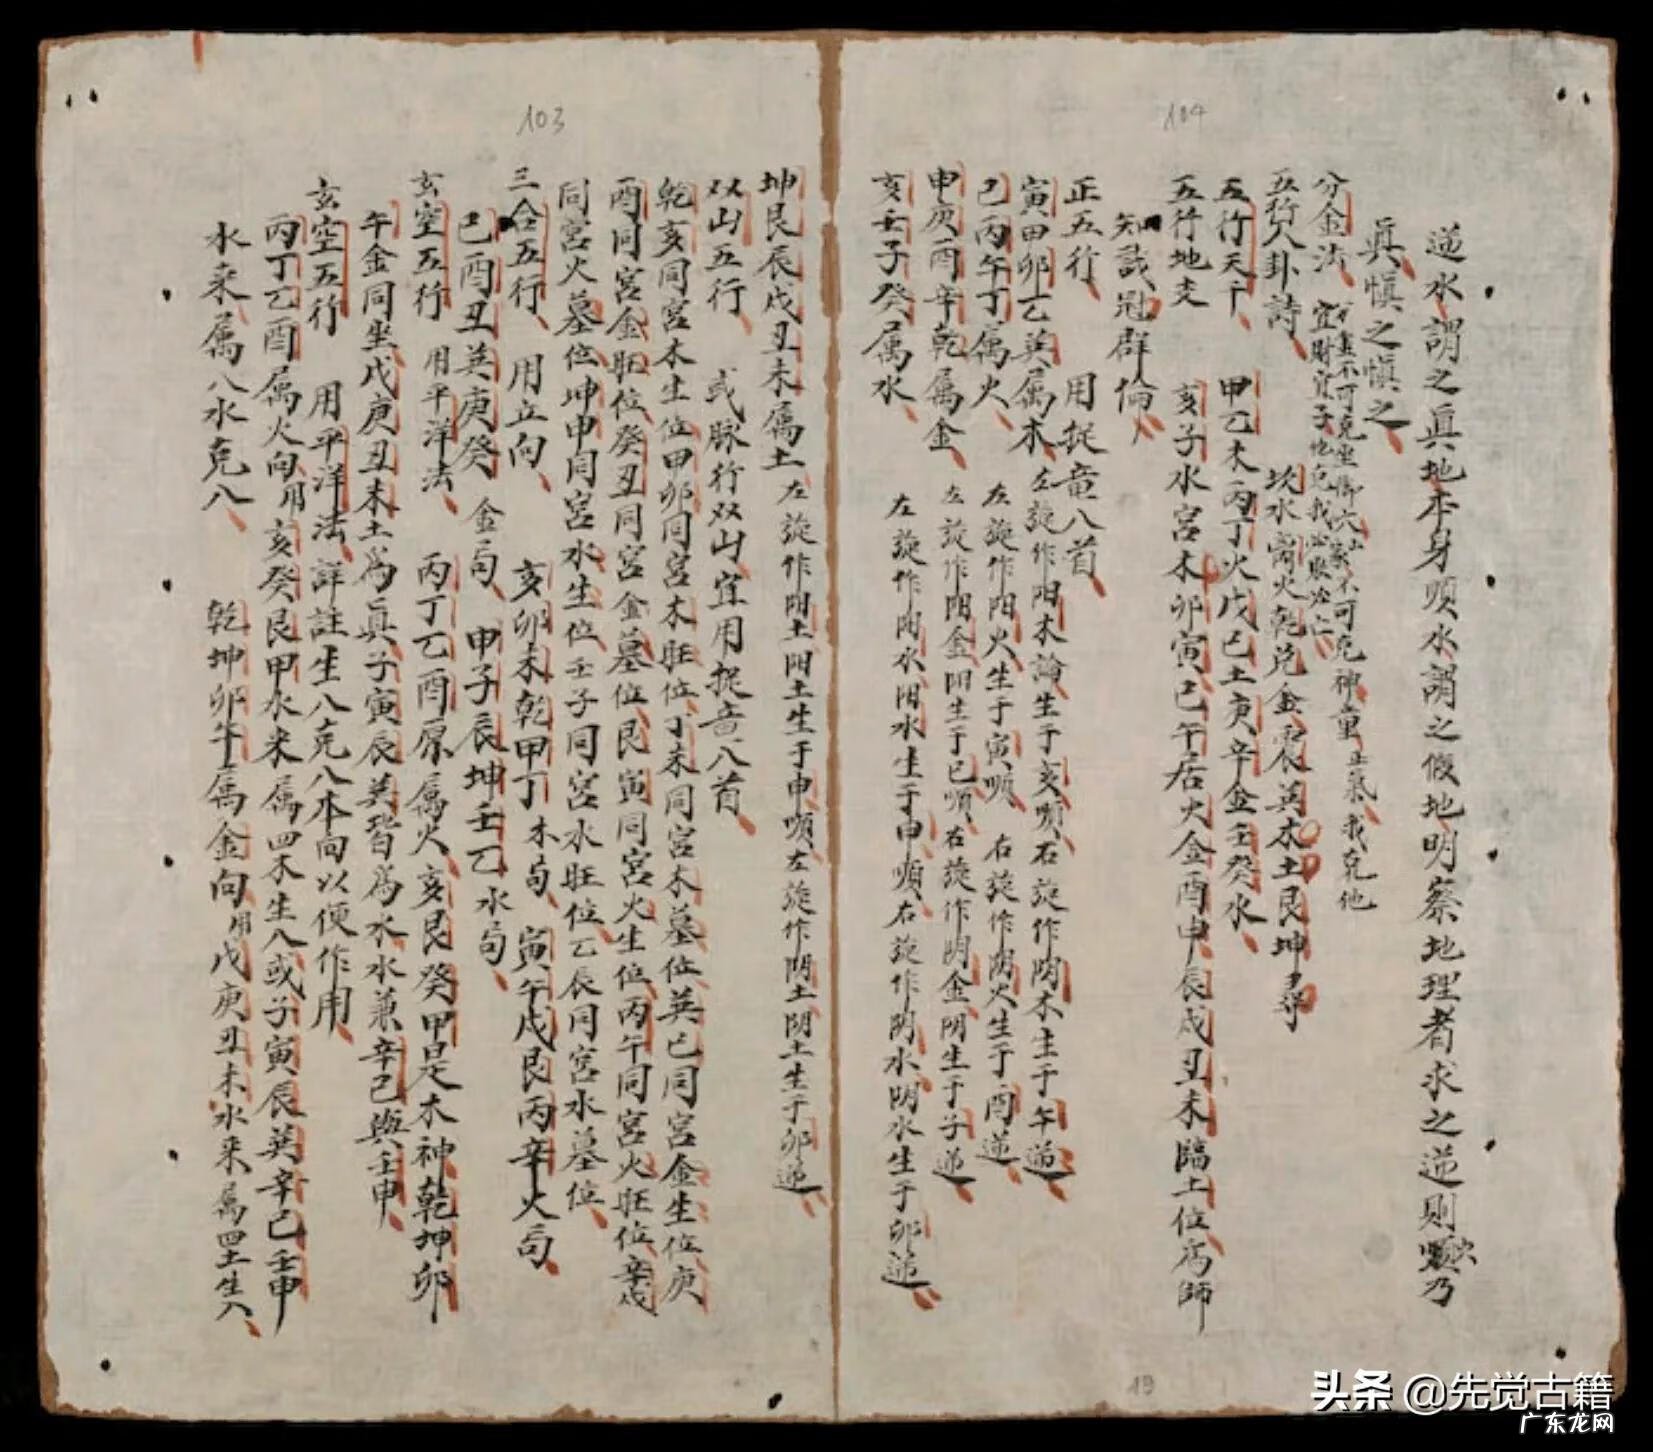 104
逆水謂之真地本身順水謂之假地明察地理者求之逆則順次乃
真慎之慎之
分金法
宜財官子
不可克
神童
我克他
五行八卦詩
坎水离火乾兑金震巽木土艮坤尋
五行天干
甲乙木丙丁火戊己土庚辛金壬癸水
五行地支
亥子水宫木卯寅巳午居火金酉申辰戌丑未臨土位为師
知識冠群倫
正五行
用捉竜八首
寅甲卯乙巽属木
左旋作阳木論生于亥順右旋作阴木生于午逆
巳丙午丁属火
左旋作阳火生于寅順
右旋作阴火生于酉逆
申庚酉辛乾属金
左旋作阳金阳生于巳順右旋作阴金阴生于子逆
亥壬子癸属水
左旋作阳水阳水生于申順右旋作阴水阴水生于卯逆
103
坤艮辰戌丑未属土
左旋作阳土阳土生于申順左旋作阴土阴土生于卯逆
双山五行
或脉行双山宜用捉竜八首
乾亥同宫木生位甲卯同宫木旺位丁未同宫木墓位巽巳同宫金生位庚
酉同宫金旺位癸丑同宫金墓位艮寅同宫火生位丙午同宫火旺位辛戌
同宫火墓位坤申同宫水生位壬子同宫水旺位乙辰同宫水墓位
三合五行
用立向
亥卯未乾甲丁木局
寅午戌艮丙辛火局
巳酉丑巽庚癸金局
申子辰坤壬乙水局
玄空五行
用平洋法
丙丁乙酉原属火亥艮癸甲是木神乾坤卯
午金同坐戌庚丑未土為真子寅辰巽皆為水水兼辛巳與壬申
玄空五行
用平洋法詳註生八克八本向以便作用
丙丁乙酉属火向用亥癸艮甲水来属四木生八或子寅辰巽辛巳壬申
水来属八水克八
乾坤卯午属金向用戌庚丑未水来属四土生入
19
头条 @先觉古籍
广东龙网